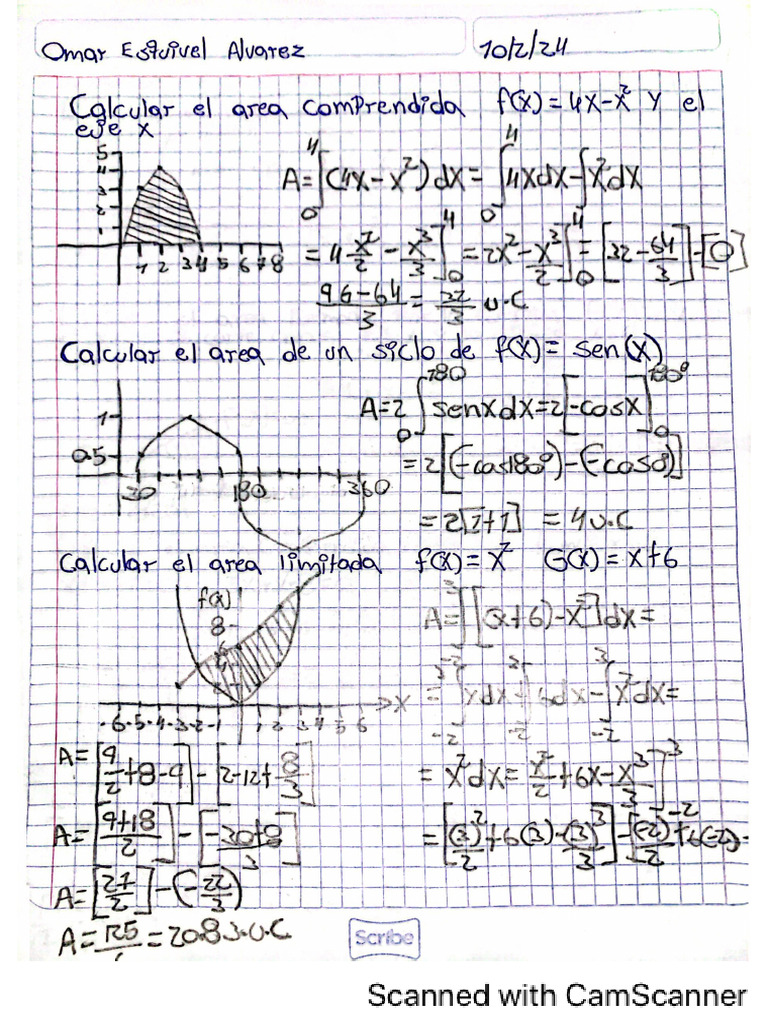 Omar Esquivel Alvarez 10/2/24
Calcular el area comprendida f(x)=4x-x² y el
eje x
5
4
3
2
1
1 2 3 4 5 6 7 8
A=∫₀⁴(4x-x²)dx=∫₀⁴4xdx-∫x²dx
=4x²/2-x³/3]₀⁴=2x²-x³/2]₀⁴=[32-64/3]-[0]
96-64/3=32/3 u.c
Calcular el area de un siclo de f(x)=sen(x)
1
0.5
30 180 360
A=2∫₀¹⁸⁰senxdx=2[-cosx]₀¹⁸⁰°
=2[(-cos180°)-(-cos0)]
=2[1+1] =4u.c
Calcular el area limitada f(x)=x² G(x)=x+6
f(x)
8
-6-5-4-3-2-1 1 2 3 4 5 6 >x
A=∫[(x+6)-x²]dx=
=∫₋₂³xdx+∫₋₂6dx-∫₋₂³x²dx=
=x²dx=x²/2+6x-x³/3]₋₂³
=[(3)²/2+6(3)-(3)³/3]-[(-2)²/2+6(-2)-
A=[9/2+8-9]-[2-12+8/3]
A=[9+18/2]-[-30+8/3]
A=[27/2]-(-22/3)
A=125/6=20.83.u.c
Scribe
Scanned with CamScanner